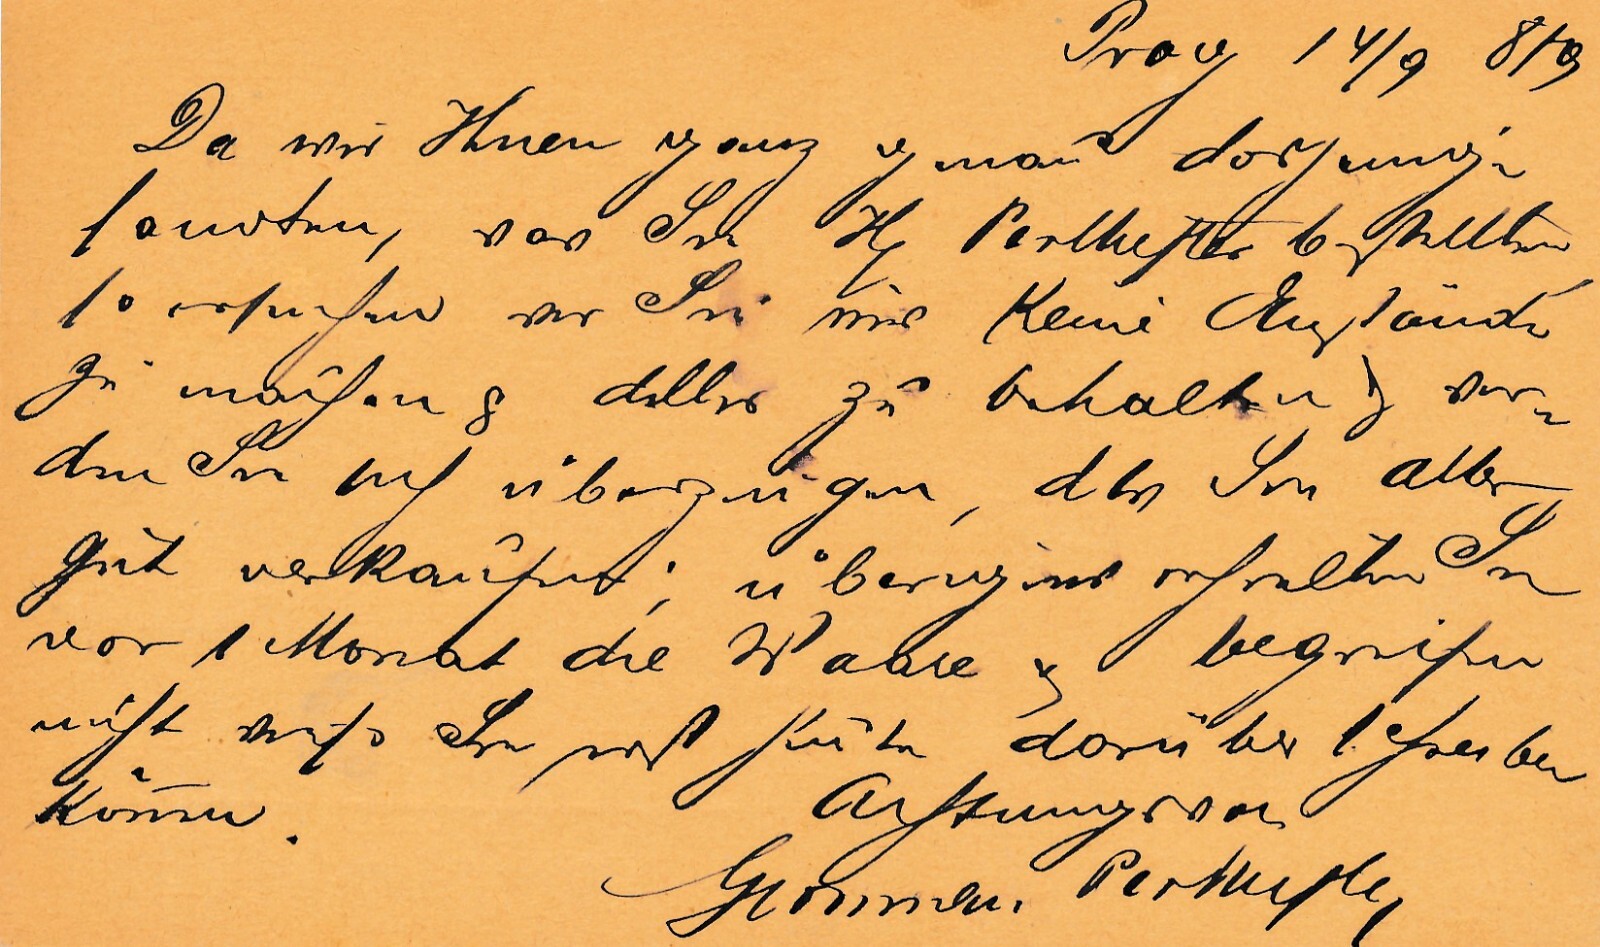 Prag 14/9 879
Da wir Ihnen ganz genau dasjenige
sandten, was Sie H Perlhefter bestellten
so ersuchen wir Sie mir keine Anstände
zu machen & alles zu behalten wer-
den Sie sich überzeugen, das Sie alles
gut verkaufen; übrigens erhielten Sie
vor 1 Monat die Waare & begreifen
nicht wieso Sie erst heute darüber schreiben
können.
Achtungsvoll
Perlhefter